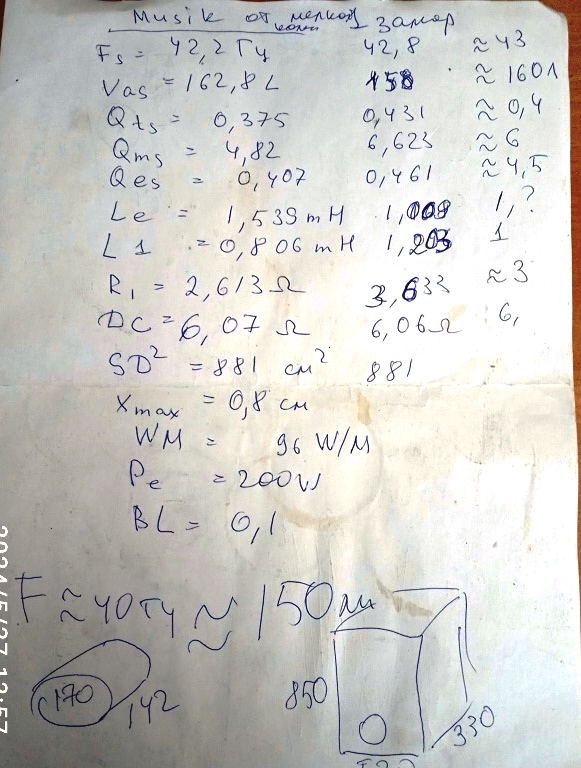 Musik от мелкой 1 замор
колонки
Fs = 42,2 Гц 42,8 ≈43
Vas = 162,8 L 158 ≈160л
Qts = 0,375 0,431 ≈0,4
Qms = 4,82 6,623 ≈6
Qes = 0,407 0,461 ≈4,5
Le = 1,539 mH 1,009 1,?
L1 = 0,806 mH 1,203 1
R1 = 2,613 Ω 3,633 ≈3
DC = 6,07 Ω 6,06 Ω 6,
SD² = 881 см² 881
Xmax = 0,8 см
WM = 96 W/M
Pe = 200W
BL = 0,1
F ≈ 40 гц ≈ 150 
170 142
850
330
2021/5/27 12:57